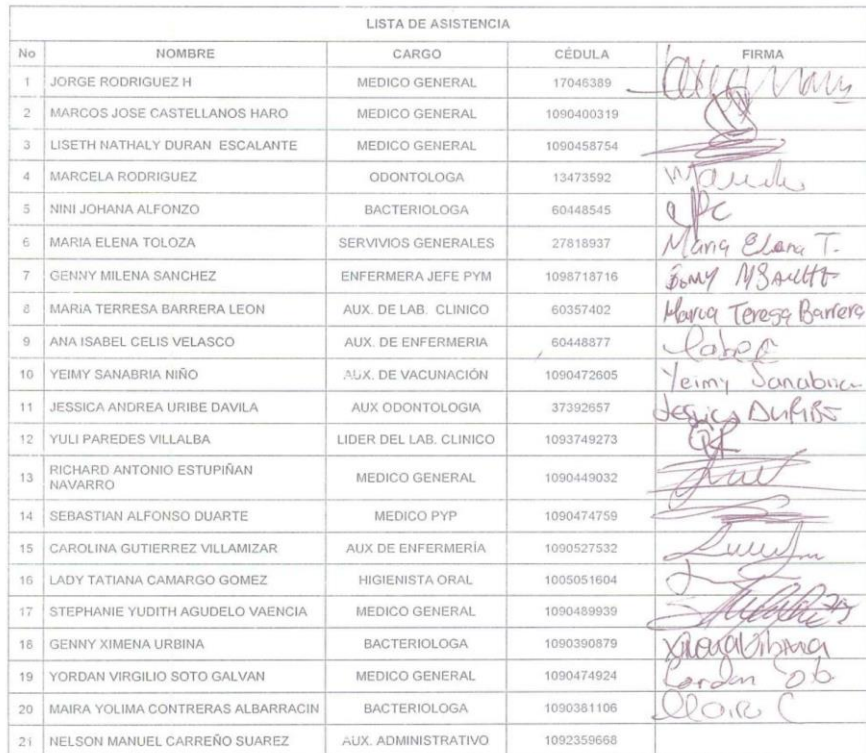 LISTA DE ASISTENCIA
No NOMBRE CARGO CÉDULA FIRMA
1 JORGE RODRIGUEZ H MEDICO GENERAL 17046389
2 MARCOS JOSE CASTELLANOS HARO MEDICO GENERAL 1090400319
3 LISETH NATHALY DURAN ESCALANTE MEDICO GENERAL 1090458754
4 MARCELA RODRIGUEZ ODONTOLOGA 13473592
5 NINI JOHANA ALFONZO BACTERIOLOGA 60448545
6 MARIA ELENA TOLOZA SERVIVIOS GENERALES 27818937 Maria Elena T.
7 GENNY MILENA SANCHEZ ENFERMERA JEFE PYM 1098718716
8 MARIA TERRESA BARRERA LEON AUX. DE LAB. CLINICO 60357402 Maria Teresa Barrera
9 ANA ISABEL CELIS VELASCO AUX. DE ENFERMERIA 60448877
10 YEIMY SANABRIA NIÑO AUX. DE VACUNACIÓN 1090472605 Yeimy Sanabria
11 JESSICA ANDREA URIBE DAVILA AUX ODONTOLOGIA 37392657 Jessica
12 YULI PAREDES VILLALBA LIDER DEL LAB. CLINICO 1093749273
13 RICHARD ANTONIO ESTUPIÑAN NAVARRO MEDICO GENERAL 1090449032
14 SEBASTIAN ALFONSO DUARTE MEDICO PYP 1090474759
15 CAROLINA GUTIERREZ VILLAMIZAR AUX DE ENFERMERÍA 1090527532
16 LADY TATIANA CAMARGO GOMEZ HIGIENISTA ORAL 1005051604
17 STEPHANIE YUDITH AGUDELO VAENCIA MEDICO GENERAL 1090489939
18 GENNY XIMENA URBINA BACTERIOLOGA 1090390879
19 YORDAN VIRGILIO SOTO GALVAN MEDICO GENERAL 1090474924
20 MAIRA YOLIMA CONTRERAS ALBARRACIN BACTERIOLOGA 1090381106
21 NELSON MANUEL CARREÑO SUAREZ AUX. ADMINISTRATIVO 1092359668